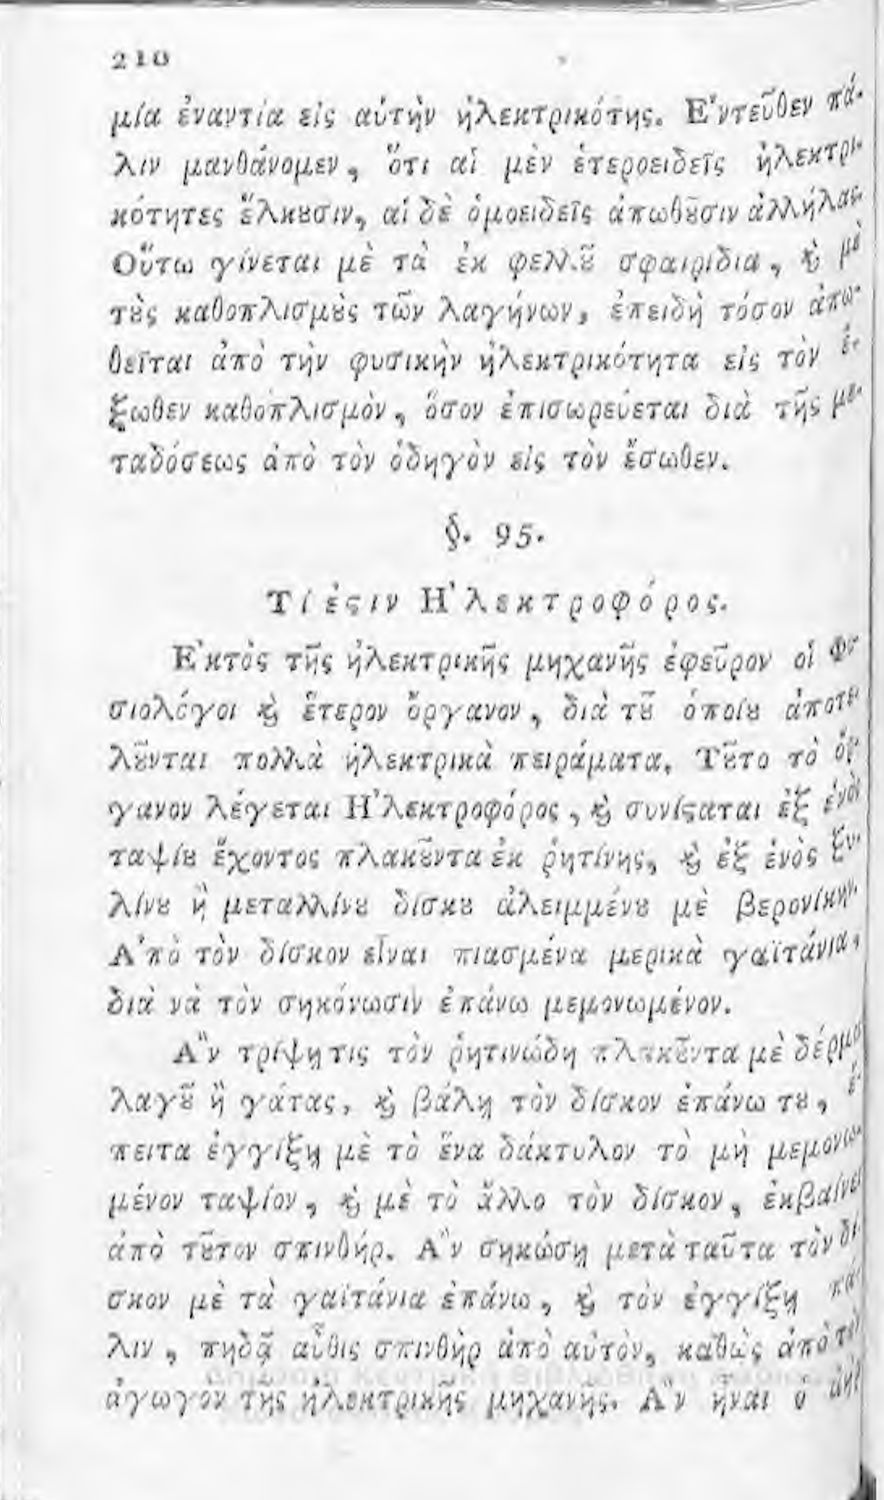 210
μία ἐναντία εἰς αὐτὴν ἠλεκτρικότης. Ἐντεῦθεν πά-
λιν μανθάνομεν, ὅτι αἱ μὲν ἑτεροειδεῖς ἠλεκτρι-
κότητες ἕλκȣσιν, αἱ δὲ ὁμοειδεῖς ἀπωθȣ͂σιν ἀλλήλας.
Οὕτω γίνεται μὲ τὰ ἐκ φελλȣ͂ σφαιρίδια, ϗ μὲ
τȣ̀ς καθοπλισμȣ̀ς τῶν λαγήνων, ἐπειδὴ τόσον ἀπω-
θεῖται ἀπὸ τὴν φυσικὴν ἠλεκτρικότητα εἰς τὸν ἔ-
ξωθεν καθοπλισμὸν, ὅσον ἐπισωρεύεται διὰ τῆς με-
ταδόσεως ἀπὸ τὸν ὁδηγὸν εἰς τὸν ἔσωθεν.
§. 95.
Τί ἐϛιν Ἠλεκτροφόρος.
Ἐκτὸς τῆς ἠλεκτρικῆς μηχανῆς ἐφεῦρον οἱ Φυ-
σιολόγοι ϗ ἕτερον ὄργανον, διὰ τȣ͂ ὁποίȣ ἀποτε-
λȣ͂νται πολλὰ ἠλεκτρικὰ πειράματα. Τȣ͂το τὸ ὄρ-
γανον λέγεται Ἠλεκτροφόρος, ϗ συνίϛαται ἐξ ἑνὸς
ταψίȣ ἔχοντος πλακȣ͂ντα ἐκ ῥητίνης, ϗ ἐξ ἑνὸς ξυ-
λίνȣ ἢ μεταλλίνȣ δίσκȣ ἀλειμμένȣ μὲ βερονίκην.
Ἀπὸ τὸν δίσκον εἶναι πιασμένα μερικὰ γαϊτάνια,
διὰ νὰ τὸν σηκόνωσιν ἐπάνω μεμονωμένον.
Ἂν τρίψῃ τις τὸν ῥητινώδη πλακȣ͂ντα μὲ δέρμα
λαγȣ͂ ἢ γάτας, ϗ βάλῃ τὸν δίσκον ἐπάνω τȣ, ἔ-
πειτα ἐγγίξῃ μὲ τὸ ἕνα δάκτυλον τὸ μὴ μεμονω-
μένον ταψίον, ϗ μὲ τὸ ἄλλο τὸν δίσκον, ἐκβαίνει
ἀπὸ τȣ͂τον σπινθήρ. Ἂν σηκώσῃ μετὰ ταῦτα τὸν δί-
σκον μὲ τὰ γαϊτάνια ἐπάνω, ϗ τὸν ἐγγίξῃ πά-
λιν, πηδᾷ αὖθις σπινθὴρ ἀπὸ αὐτὸν, καθὼς ἀπὸ τὸν
ἀγωγὸν τῆς ἠλεκτρικῆς μηχανῆς. Ἂν ᾖναι ὁ